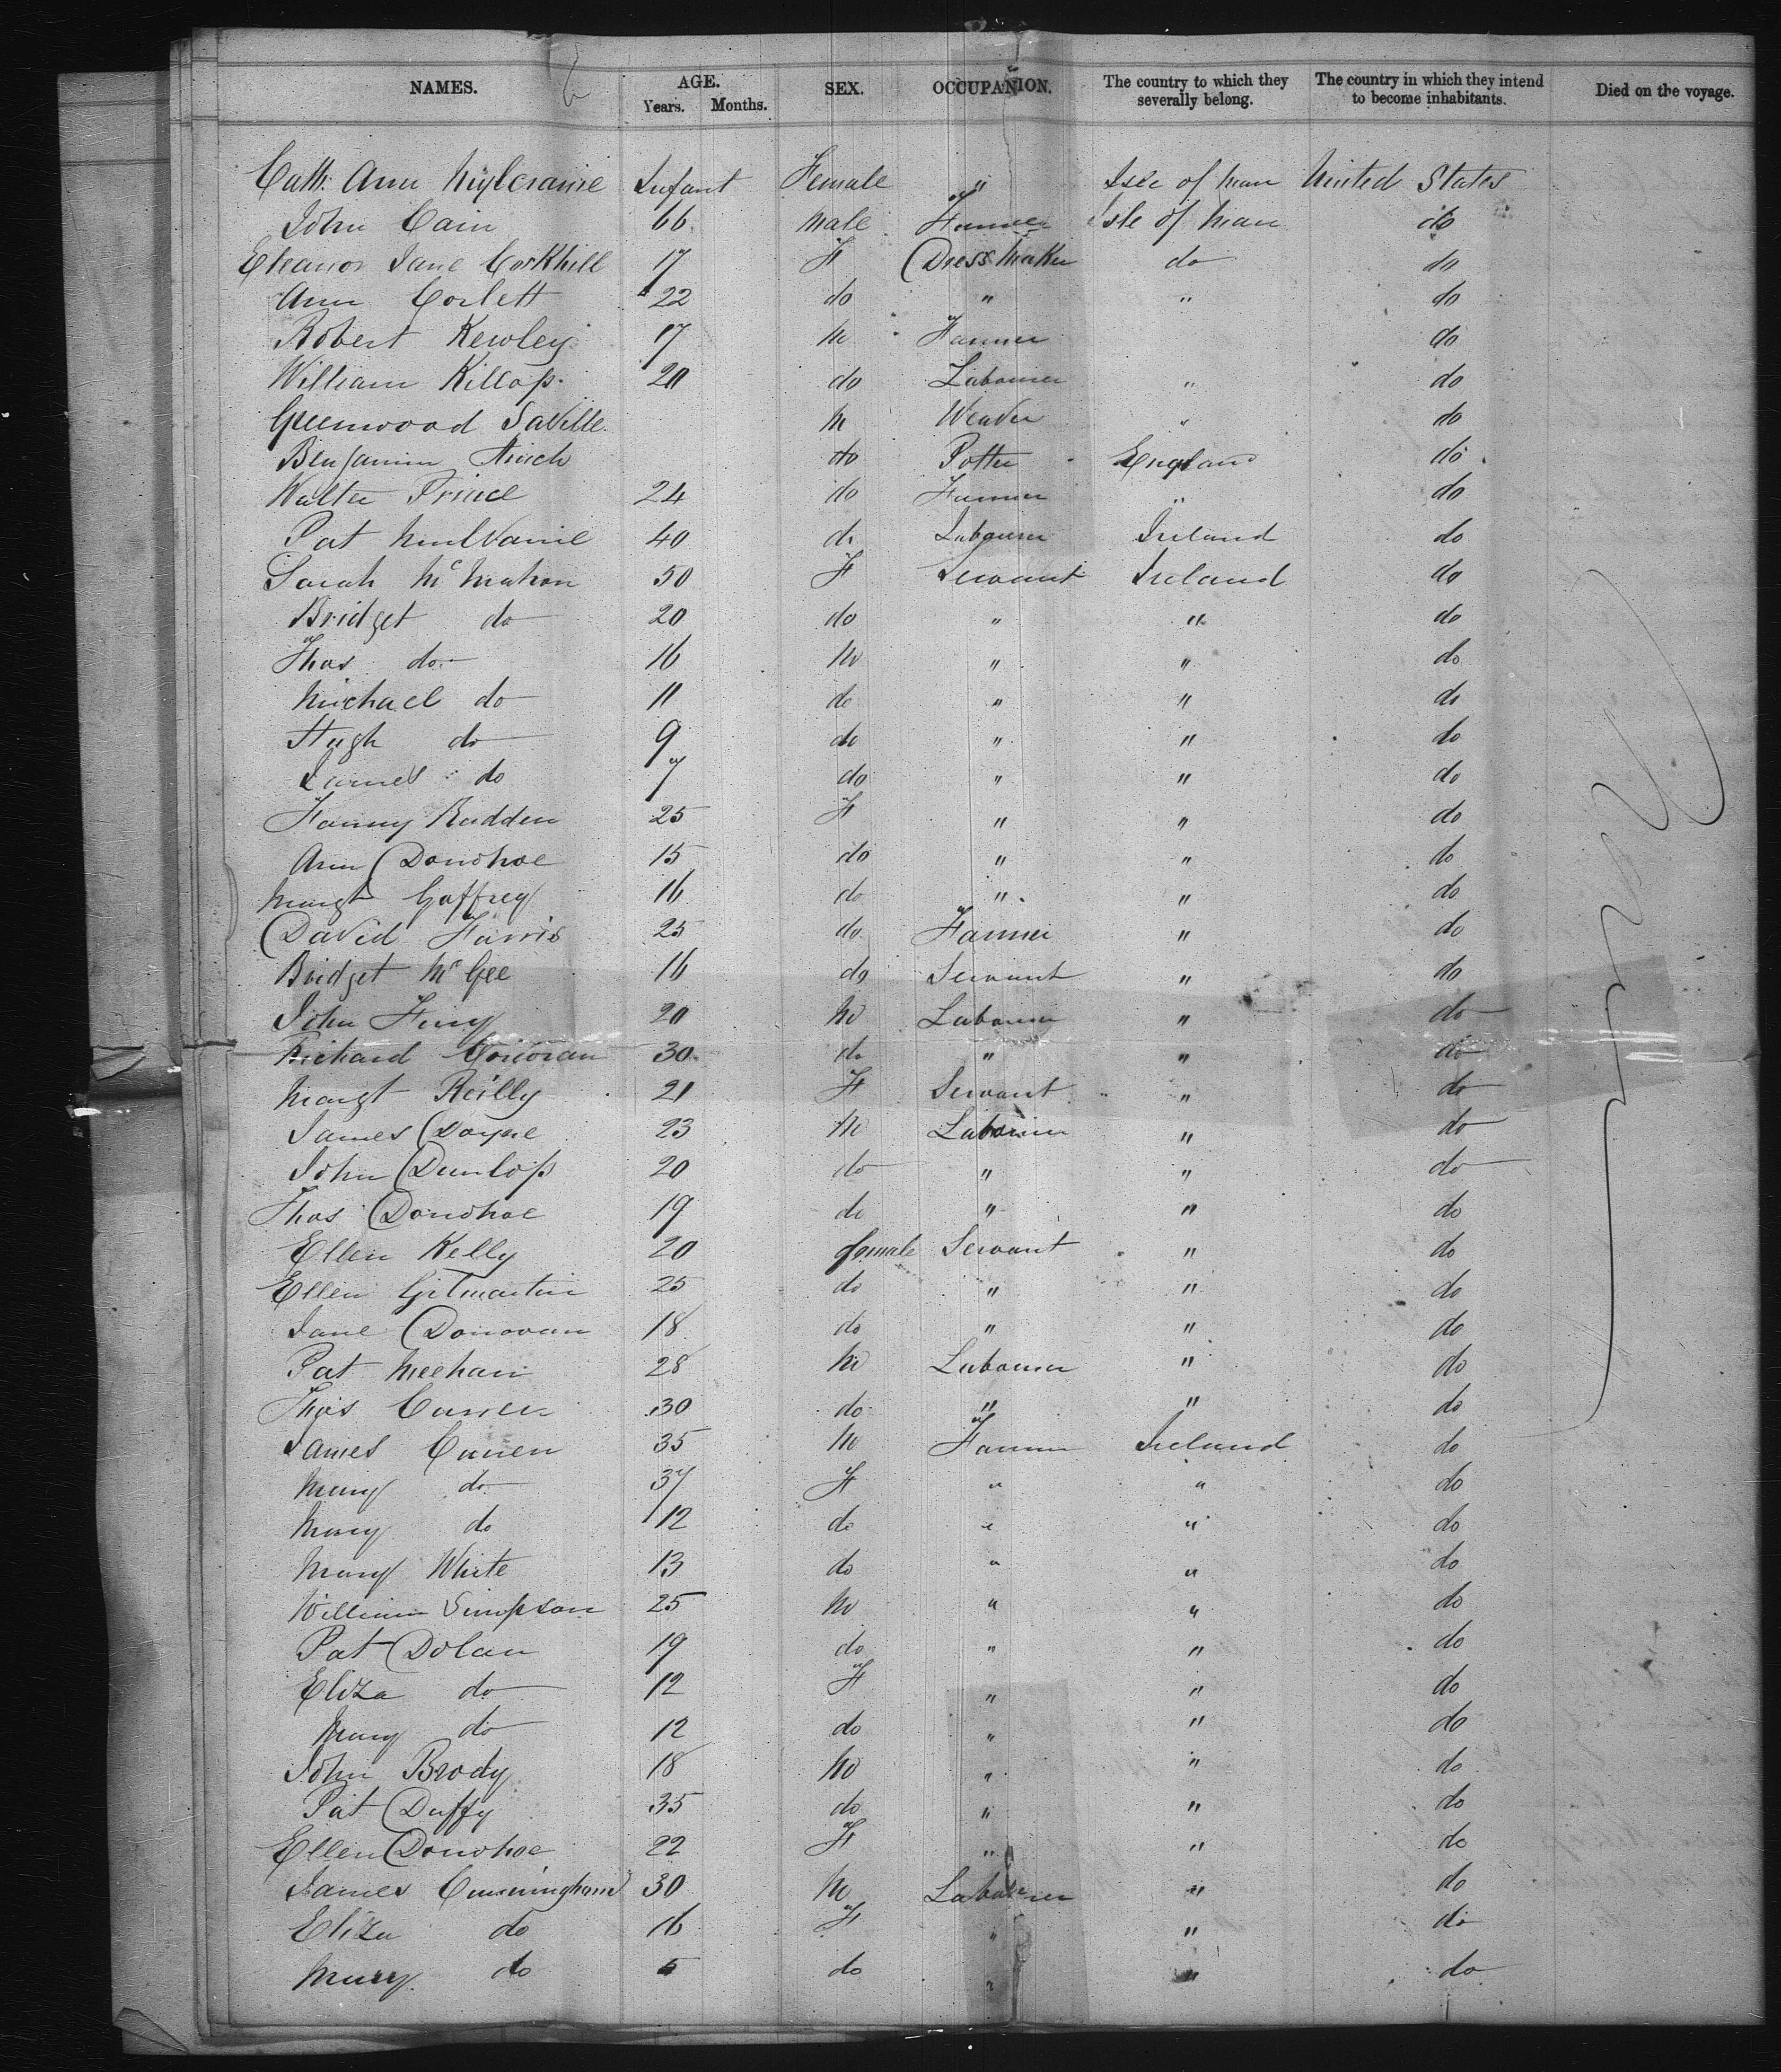 NAMES. AGE. Years. Months. SEX. OCCUPATION. The country to which they severally belong. The country in which they intend to become inhabitants. Died on the voyage.
Cath: Ann Mylcraine Infant Female " Isle of Man United States
John Cain 66 Male Farmer Isle of Man do
Eleanor Jane Corkhill 17 F Dress Maker do do
Ann Corlett 22 do " " do
Robert Kewley 17 M Farmer do
William Killop. 20 do Labourer " do
Greenwood Saville. M Weaver " do
Benjamin Hinch do Potter England do
Walter Prince 24 do Farmer " do
Pat Mulvanie 40 do Labourer Ireland do
Sarah McMahon 50 F Servant Ireland do
Bridget do 20 do " " do
Thos do 16 M " " do
Michael do 11 do " " do
Hugh do 9 do " " do
James do 7 do " " do
Fanny Rudden 25 F " " do
Ann Donohoe 15 do " " do
Margt Gaffrey 16 do " " do
David Farris 25 do Farmer " do
Bridget McGee 16 do Servant " do
John 20 M Labourer " do
Richard Corcoran 30 do " " do
Margt Reilly 21 F Servant " do
James Doyle 23 M Labourer " do
John Dunlop 20 do " " do
Thos Donohoe 19 do " " do
Ellen Kelly 20 female Servant " do
Ellen Gilmartin 25 do " " do
Jane Donovan 18 do " " do
Pat Meehan 28 M Labourer " do
Thos Curren 30 do " " do
James Curren 35 M Farmer Ireland do
Mary do 37 F " " do
Mary do 12 do " " do
Mary White 13 do " " do
William Simpson 25 M " " do
Pat Dolan 19 do " " do
Eliza do 12 F " " do
Mary do 12 do " " do
John Brody 18 M " " do
Pat Duffy 35 do " " do
Ellen Donohoe 22 F " " do
James Cunningham 30 M Labourer " do
Eliza do 16 F " " do
Mary do 5 do " " do